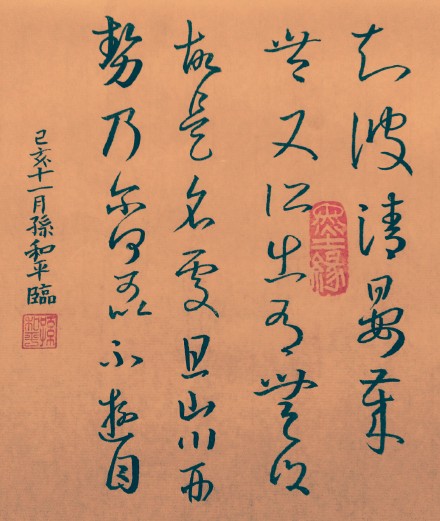 知彼清晏歲
豐又所出有無鄉
故是名處且山川形
勢乃爾何可以不遊目
己亥十一月孫和平臨